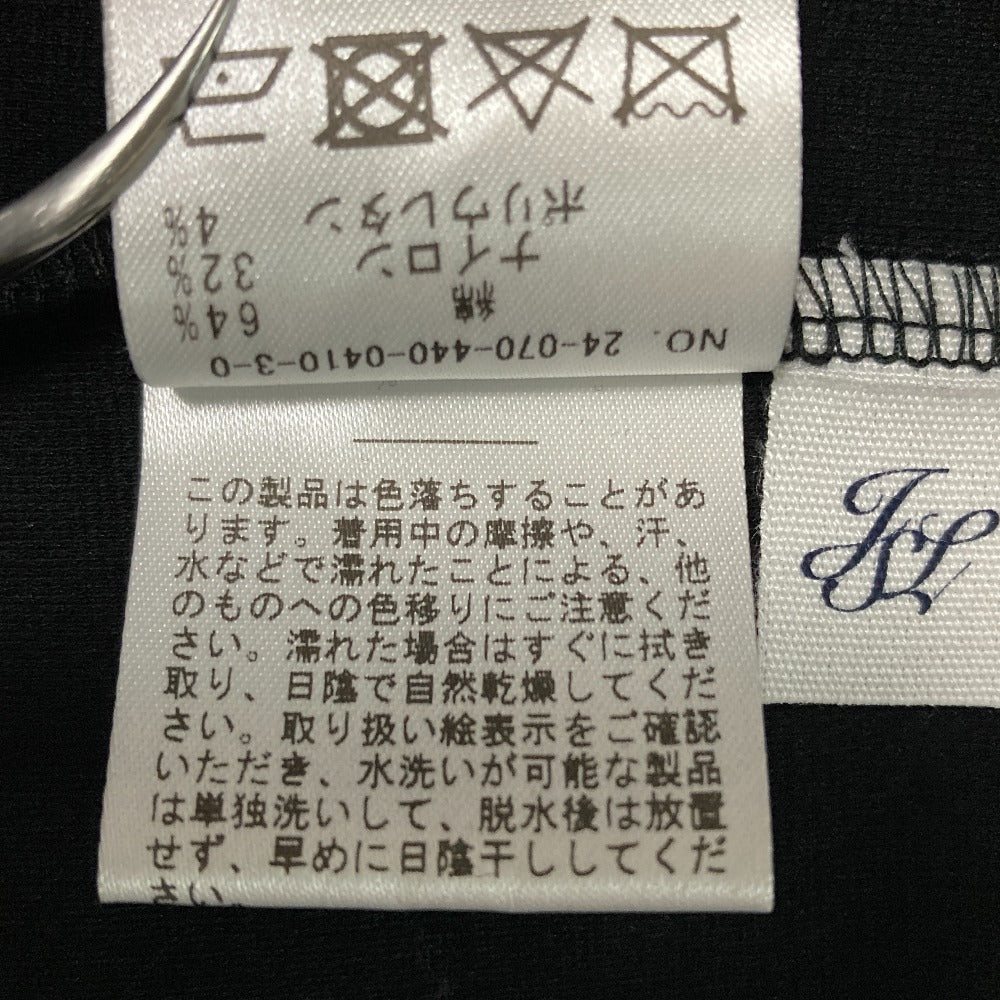 NO. 24-070-440-0410-3-0
綿 64%
ナイロン 32%
ポリウレタン 4%
この製品は色落ちすることがあ
ります。着用中の摩擦や、汗、
水などで濡れたことによる、他
のものへの色移りにご注意くだ
さい。濡れた場合はすぐに拭き
取り、日陰で自然乾燥してくだ
さい。取り扱い絵表示をご確認
いただき、水洗いが可能な製品
は単独洗いして、脱水後は放置
せず、早めに日陰干ししてくだ
さい。